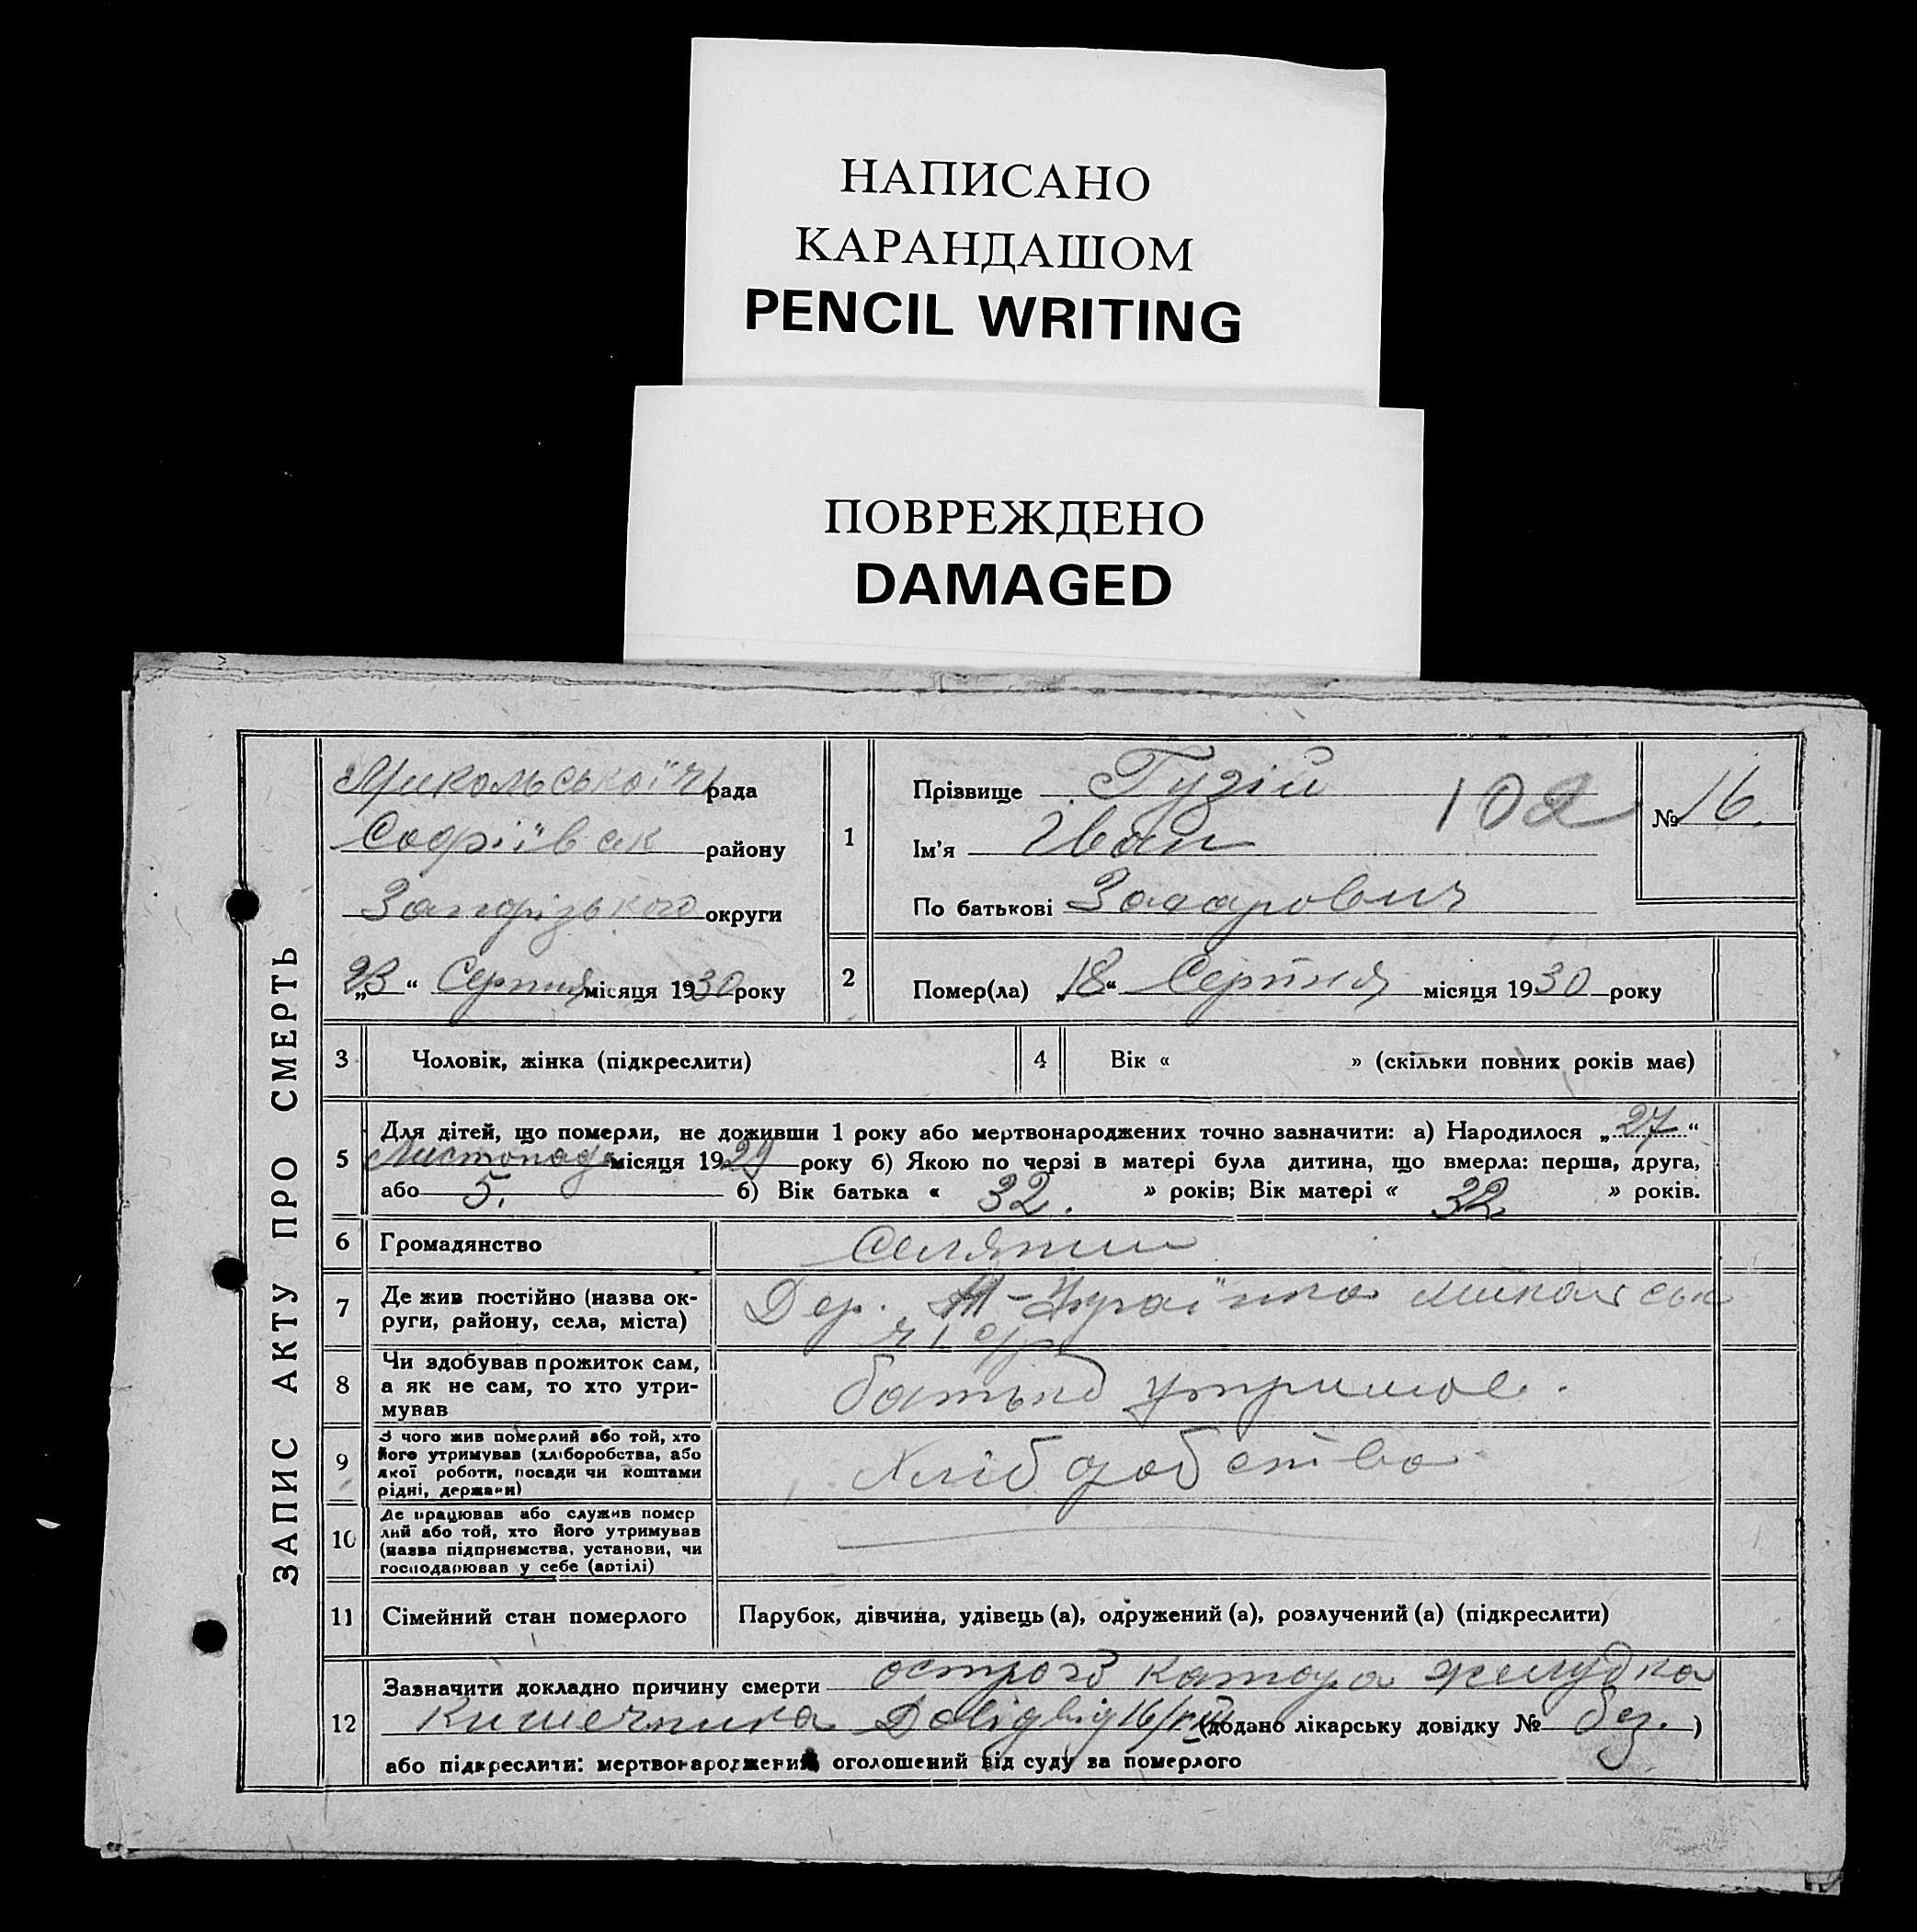 НАПИСАНО
КАРАНДАШОМ
PENCIL WRITING
ПОВРЕЖДЕНО
DAMAGED
ЗАПИС АКТУ ПРО СМЕРТЬ
Микольської рада
Софіївськ району
Запорізького округи
„23“ Серпня місяця 1930 року
1
Прізвище Гузій
Ім'я Іван
По батькові Захарович
102
№ 16.
2
Помер(ла) „18“ Серпня місяця 1930 року
3 Чоловік, жінка (підкреслити)
4 Вік « » (скільки повних років має)
5 Для дітей, що померли, не доживши 1 року або мертвонароджених точно зазначити: а) Народилося „27“
Листопада місяця 1929 року б) Якою по черзі в матері була дитина, що вмерла: перша, друга,
або 5. б) Вік батька « 32. » років; Вік матері « 32 » років.
6 Громадянство Селянин
7 Де жив постійно (назва ок-
руги, району, села, міста) Дер. Українка Микольськ
8 Чи здобував прожиток сам,
а як не сам, то хто утри-
мував батько утримов.
9 З чого жив померлий або той, хто
його утримував (хліборобства, або
якої роботи, посади чи коштами
рідні, держави) Хліборобство
10 Де працював або служив помер
лий або той, хто його утримував
(назва підприємства, установи, чи
господарював у себе (артілі)
11 Сімейний стан померлого Парубок, дівчина, удівець (а), одружений (а), розлучений (а) (підкреслити)
12 Зазначити докладно причину смерти острого катара желудка
Кишечника 16/VIII (додано лікарську довідку № без. )
або підкреслити: мертвонароджений, оголошений від суду за померлого